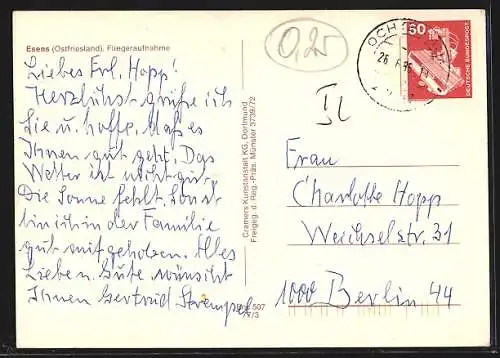 Esens (Ostfriesland), Fliegeraufnahme
Liebes Frl. Hopp!
Herzlichst grüße ich
Sie u. hoffe, daß es
Ihnen gut geht. Das
Wetter ist nicht gut.
Die Sonne fehlt. Sonst
bin ich in der Familie
gut aufgehoben. Alles
Liebe u. Gute wünscht
Ihnen Gertrud Strempel
Cramers Kunstanstalt KG, Dortmund
Freigeg. d. Reg.-Präs. Münster 3739/72
507
7/3
0,25
OCH
26
60
DEUTSCHE BUNDESPOST
Frau
Charlotte Hopp
Weichselstr. 31
1000 Berlin 44